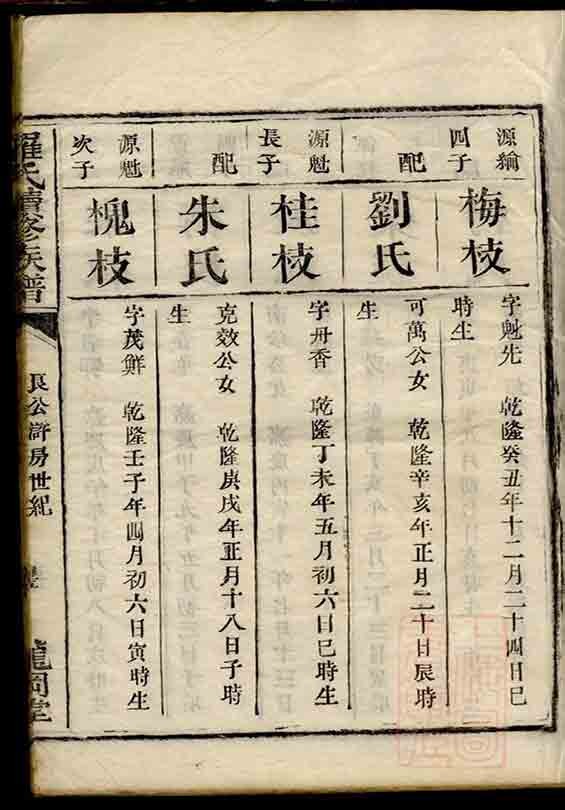 源綸
四子
梅枝
字魁先 乾隆癸丑年十二月二十四日巳
時生
配
劉氏
可萬公女 乾隆辛亥年正月二十日辰時
生
源魁
長子
桂枝
字丹香 乾隆丁未年五月初六日巳時生
配
朱氏
克效公女 乾隆庚戌年正月十八日子時
生
源魁
次子
槐枝
字茂鮮 乾隆壬子年四月初六日寅時生
羅氏續修族譜
長公諱房世紀
龍岡堂